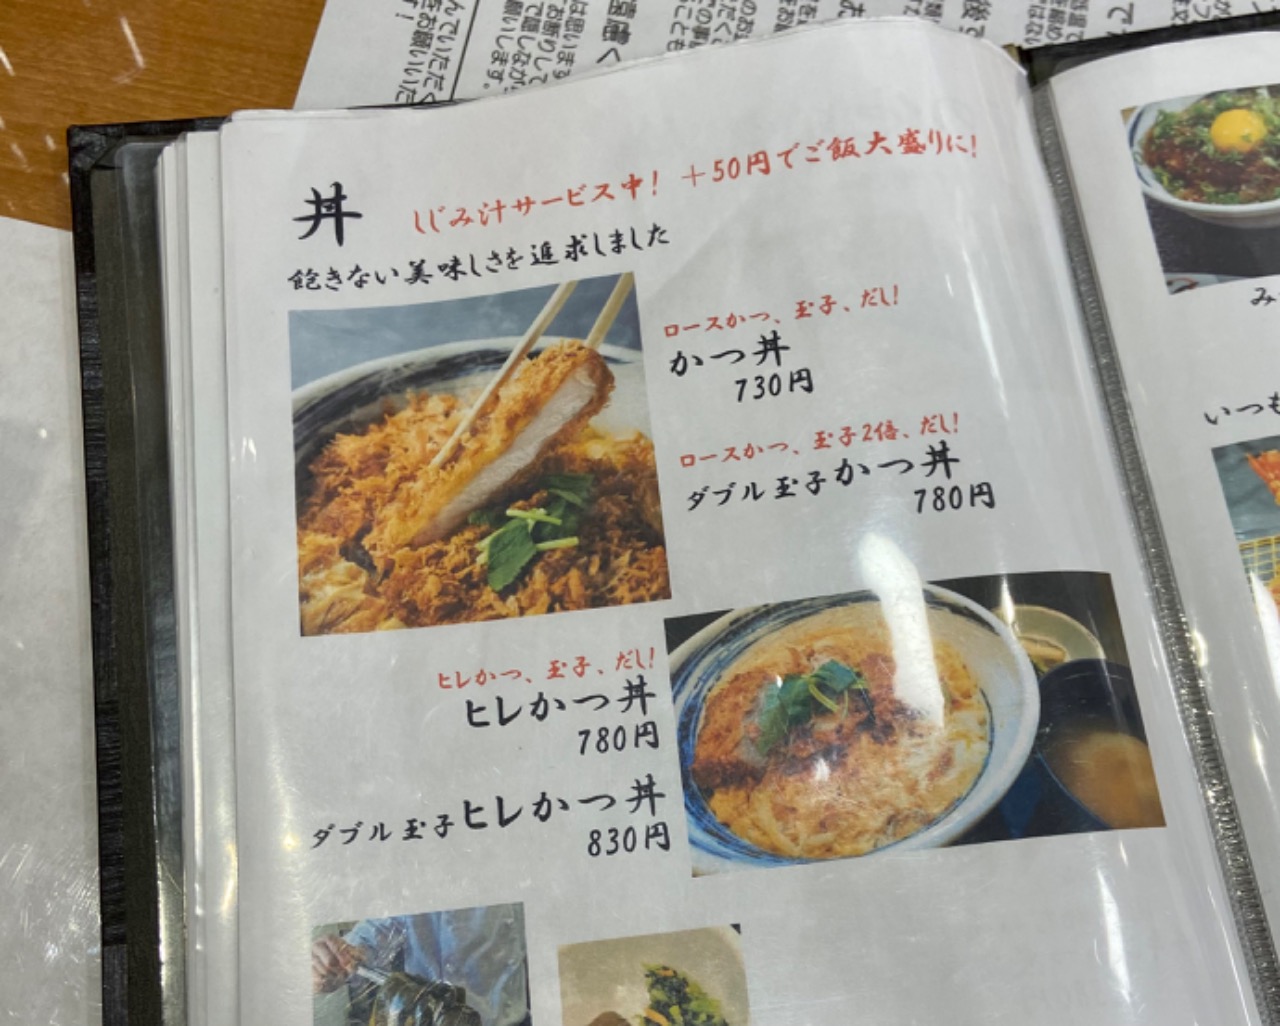 丼
しじみ汁サービス中! +50円でご飯大盛りに!
飽きない美味しさを追求しました
ロースかつ、玉子、だし!
かつ丼
730円
ロースかつ、玉子2倍、だし!
ダブル玉子かつ丼
780円
ヒレかつ、玉子、だし!
ヒレかつ丼
780円
ダブル玉子ヒレかつ丼
830円
み
いつも